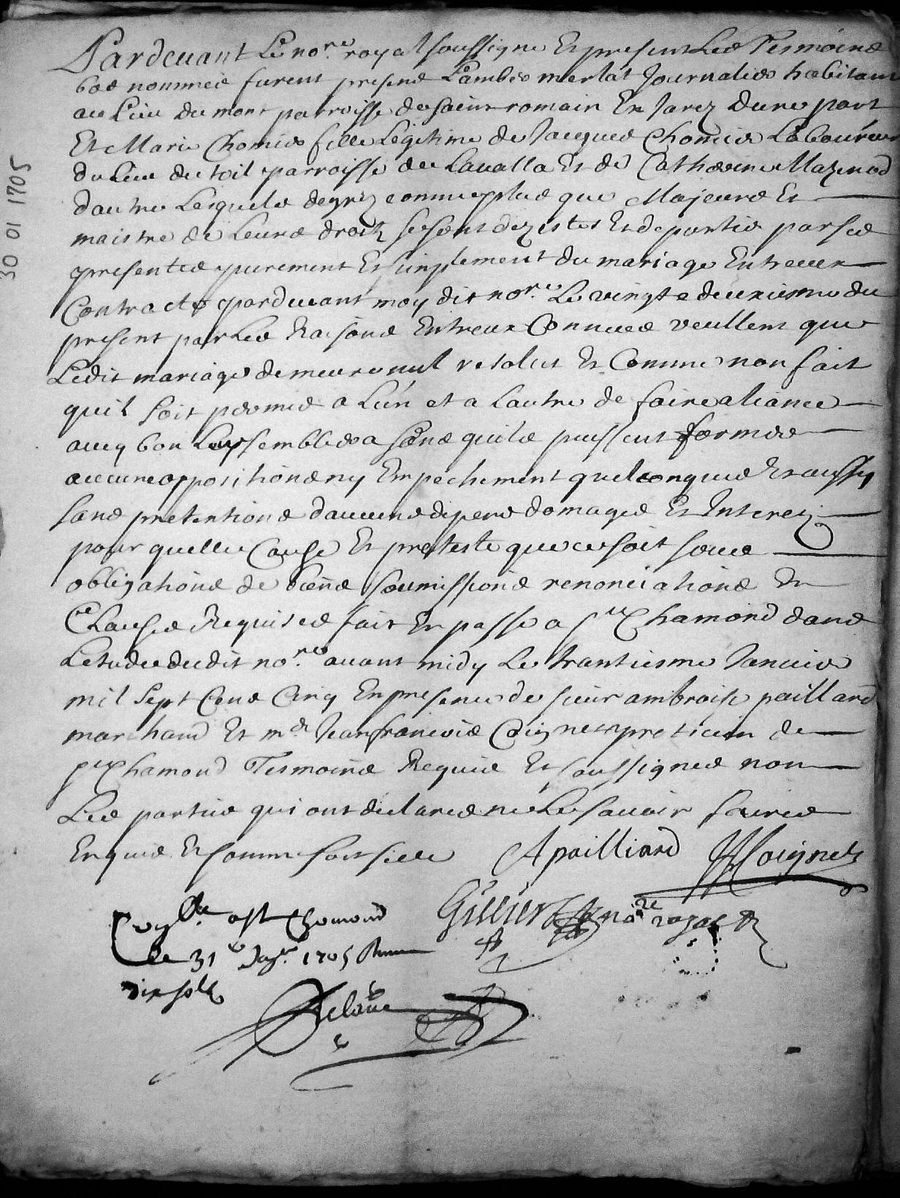 Pardevant Le nore royal soussigne Et present Les Tesmoins
bas nommes furent presens Lambes merlat Journalies habitant
au Lieu du mont parroisse de saint romain En Jarez Dune part
Et Marie Chomies fille Legitime de Jacques Chomies Laboureur
du Lieu du toil parroisse de Lavalla Et de Catherine Mazenod
dautre Lesquels de gre comme plus que Majeurs Et
maistre de Leurs droitz se sont dezistes Et departis par ses
presentes purement Et simplement du mariage Entreux
Contracte pardevant moy dit nore Le vingt deuxiesme du
present par Les Raisons Entreux Connues veullent que
Ledit mariage demeure nul resolut Et Comme non fait
quil soit permis a Lun et a Lautre de faire aliance
avec bon Leur semblera sans quils puissent formes
aucune oppositions ny Empechement quelconques Et aussy
sans pretentions daucuns depens domages Et Interez
pour quelle Cause Et preteste que ce soit sous
obligations de biens soumissions renonciations Et
Clauses Requises fait Et passe a St Chamond dans
Lestude dudit nore avant midy Le trantiesme Janvier
mil sept Cens Cinq En presence de sieur ambroise paillard
marchand Et me Jean francois Coignet praticien de
St Chamond Tesmoins Requis Et soussignes non
Les parties qui ont declares ne Le savoir faire
Enquis Et sommes
Apailliard JfCoignet
Gillier nore royal
Con lle a St Chomond
Le 31e Janr 1705 Receu
dix sols
Delaue
30 01 1705